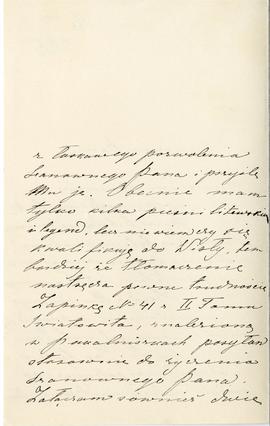 z łaskawego pozwolenia
Szanownego Pana i prześlę
Mu je. Obecnie mam
tylko kilka pieśni litewskich
i legend, lecz nie wiem czy się
kwalifikują do Wisły, tem
bardziej że tłomaczenie
nastręcza pewne trudności.
Zapinkę № 41 z II Tomu
Światowita, znalezioną
w posyłam
stosownie do życzenia
Szanownego Pana.
Załączam również dwie